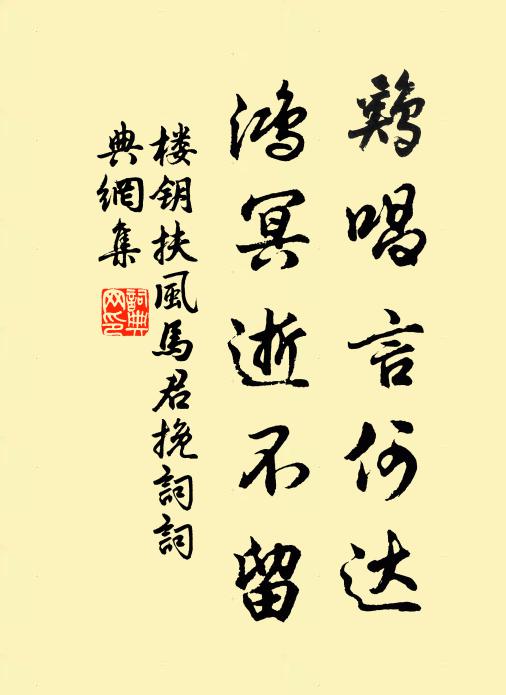 鷄唱言何达
鴻冥逝不留
楼钥扶風馬君挽詞詞
典網集
詞典网印